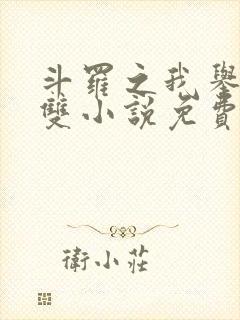 斗羅之我舉
雙小說免費
衛小莊